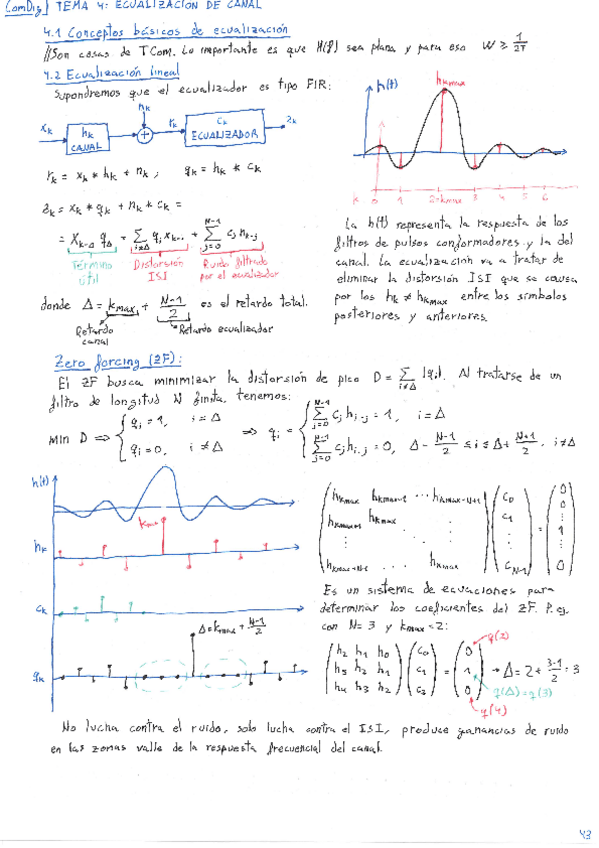 ComDig] TEMA 4: ECUALIZACIÓN DE CANAL
4.1 Conceptos básicos de ecualización
//Son cosas de TCom. Lo importante es que H(f) sea plana y para eso W ≥ 1/2T
4.2 Ecualización lineal
Supondremos que el ecualizador es tipo FIR:
x_k h_k CANAL n_k + r_k c_k ECUALIZADOR z_k
h(t) h_kmax
k 0 1 2=kmax 3 4 5 6
r_k = x_k * h_k + n_k ; q_k = h_k * c_k
z_k = x_k * q_k + n_k * c_k =
= x_{k-Δ} q_Δ + Σ_{i≠Δ} q_i x_{k-i} + Σ_{j=0}^{N-1} c_j n_{k-j}
Término útil
Distorsión ISI
Ruido filtrado por el ecualizador
donde Δ = k_max + (N-1)/2 es el retardo total.
Retardo canal
Retardo ecualizador
La h(t) representa la respuesta de los
filtros de pulsos conformadores y la del
canal. La ecualización va a tratar de
eliminar la distorsión ISI que se causa
por los h_k ≠ h_kmax entre los símbolos
posteriores y anteriores.
Zero forcing (ZF):
El ZF busca minimizar la distorsión de pico D = Σ_{i≠Δ} |q_i|. Al tratarse de un
filtro de longitud N finita, tenemos:
MIN D ⇒ { q_i = 1, i = Δ ; q_i = 0, i ≠ Δ ⇒ q_i = { Σ_{j=0}^{N-1} c_j h_{i-j} = 1, i = Δ ; Σ_{j=0}^{N-1} c_j h_{i-j} = 0, Δ - (N-1)/2 ≤ i ≤ Δ + (N-1)/2, i ≠ Δ
h(t)
kmax
h_k
c_k
Δ = k_max + (N-1)/2
q_k
Es un sistema de ecuaciones para
determinar los coeficientes del ZF. P.ej.
con N = 3 y kmax = 2:
(h2 h1 h0; h3 h2 h1; h4 h3 h2) (c0; c1; c2) = (0; 1; 0) → Δ = 2 + (3-1)/2 = 3
q(2)
q(Δ) = q(3)
q(4)
No lucha contra el ruido, solo lucha contra el ISI, produce ganancias de ruido
en las zonas valle de la respuesta frecuencial del canal.
43